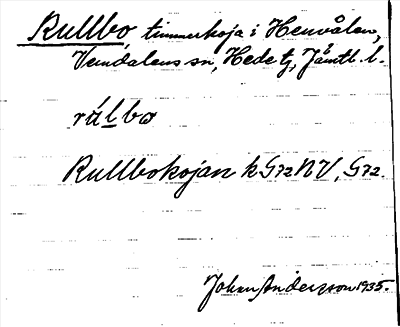 Rullbo timmerkoja i Henvålen,
Vemdalens sn, Hede tg, Jämtl. l.
rúlbo
Rullbokojan k G72NV, G72.
Johan Andersson 1935.